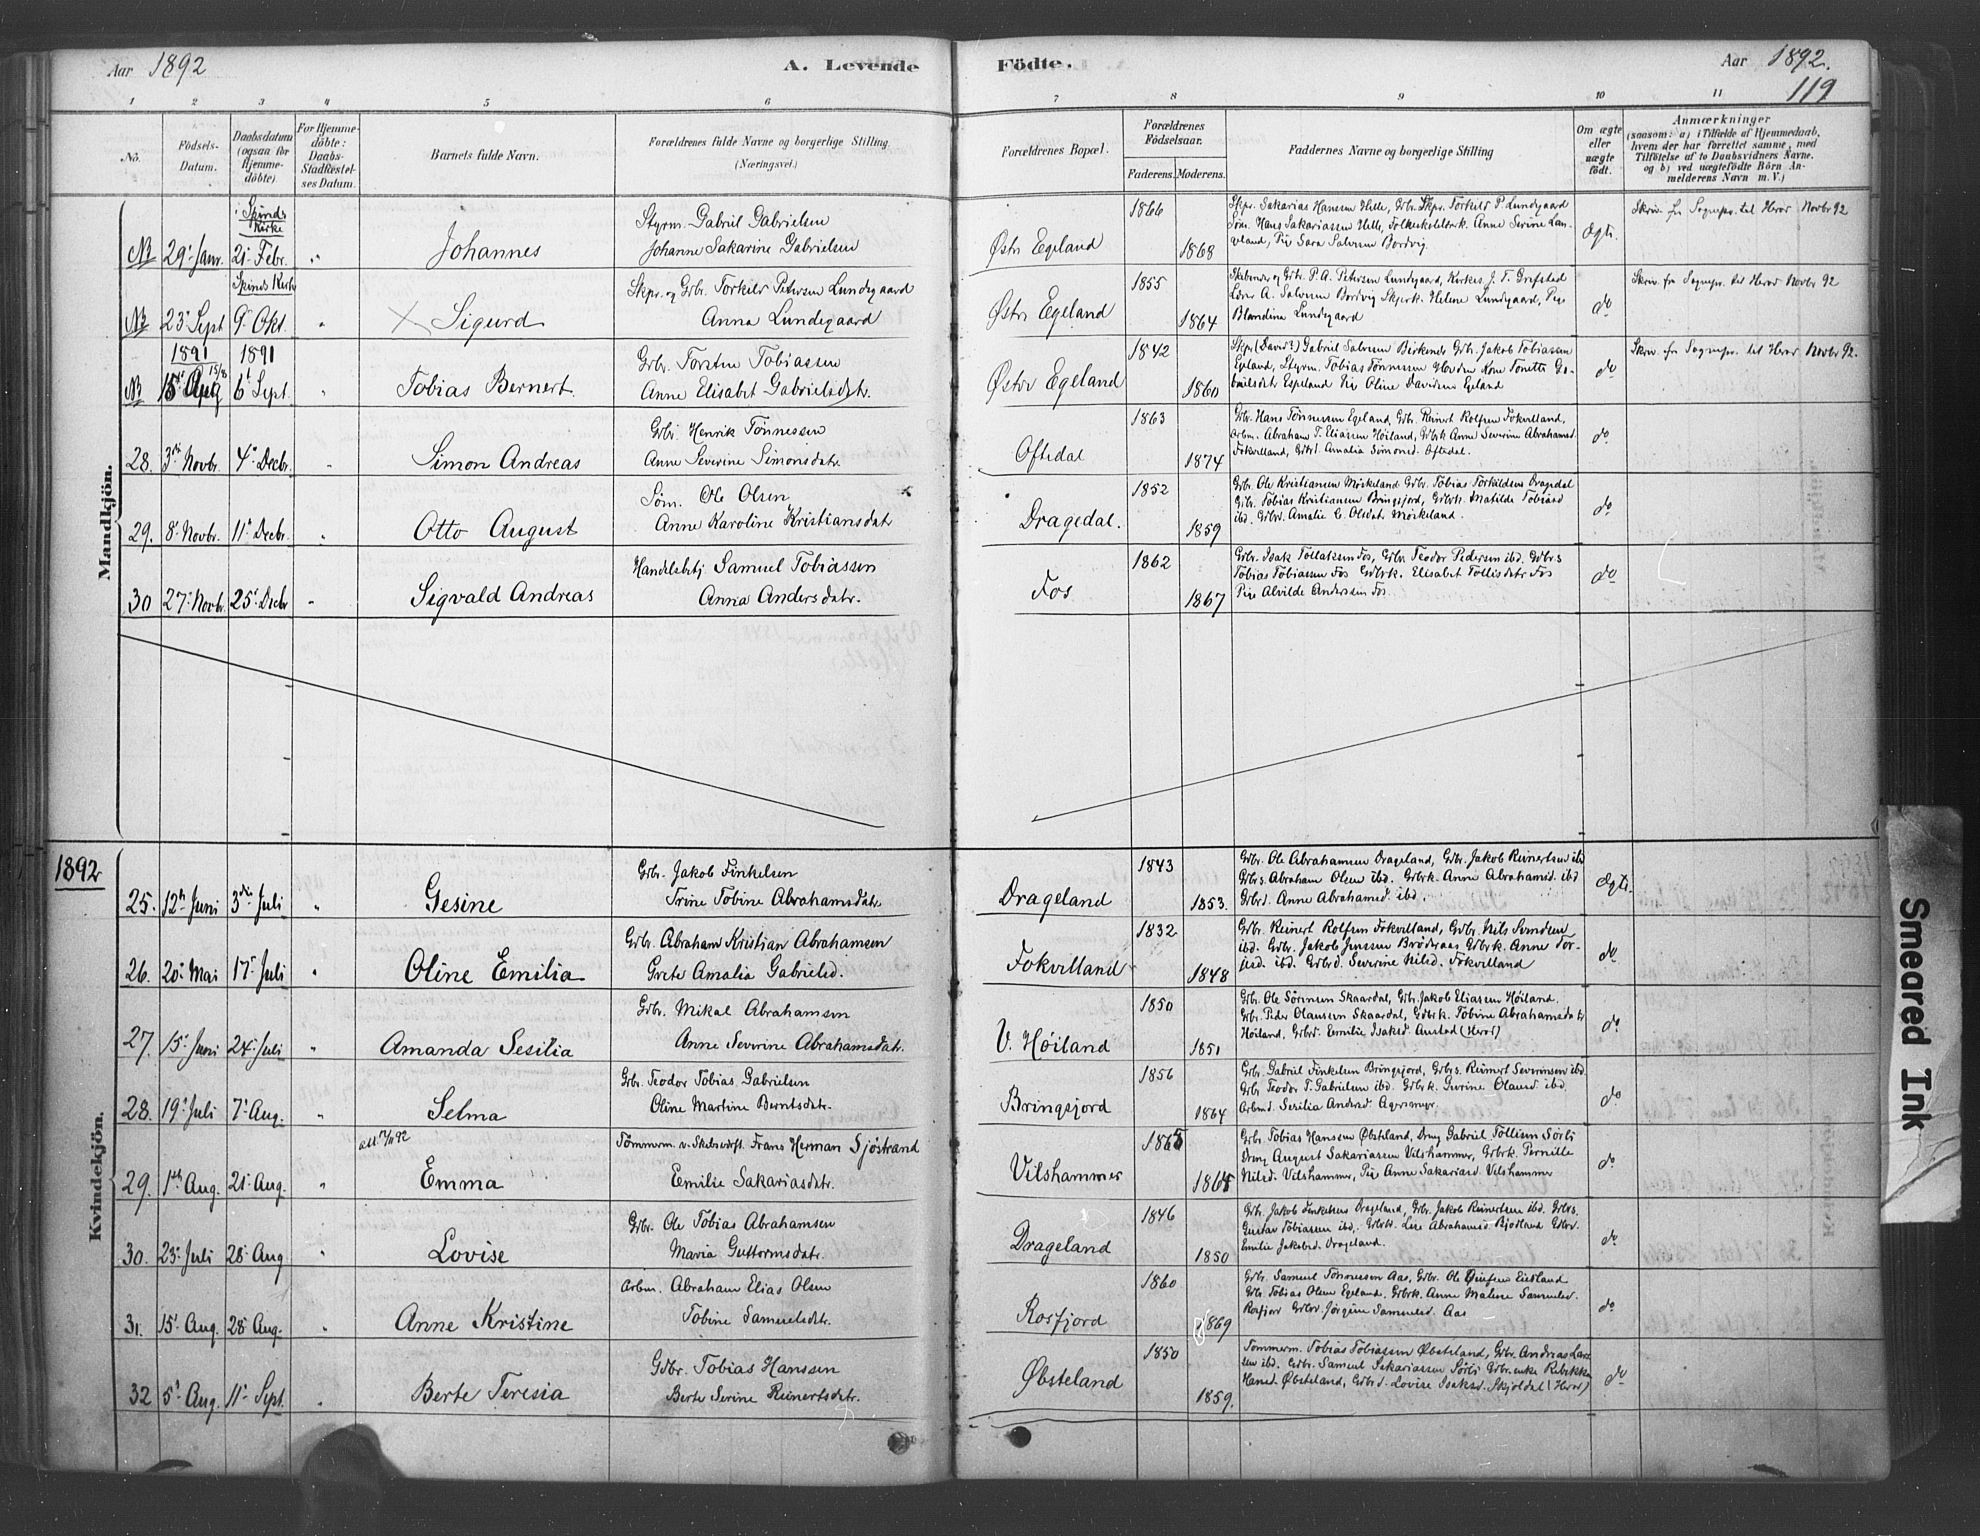 Aar 1892
A. Levende
Födte.
Aar 1892.
119
1 2 3 4 5 6 7 8 9 10 11
No.
Födsels-
Datum.
Daabsdatum
(ogsaa for
Hjemme-
döbte).
For Hjemme-
döbte:
Daabs-
Stadfæstel-
ses Datum.
Barnets fulde Navn.
Forældrenes fulde Navne og borgerlige Stilling
(Næringsvei.)
Forældrenes Bopæl.
Forældrenes
Födselsaar.
Faderens. Moderens.
Faddernes Navne og borgerlige Stilling
Om ægte
eller
uægte
födt.
Anmærkninger
(saasom: a) i Tilfælde af Hjemmedaab,
hvem der har forrettet samme, med
Tilföielse af to Daabsvidners Navne.
og b) ved uægtefödte Börn An-
melderens Navn m. V.)
Mandkjön.
Spinds
Kirke
NB 29. Janr. 21. Febr. "
Johannes
Styrm. Gabriel Gabrielsen
Johanne Sakarine Gabrielsen
Østre Egeland
1866
1868
Skpr. Sakarias Hanssen Hille, Gbr. Skpr. Torkild P. Lundegaard
Søm. Hans Sakariassen Hille, Folkeskolelærk. Anne Serine Lun-
geland, Pige Sara Salvesen Bordvig
Ægte.
Skriv. fr. Sognepr. til Herad Novbr 92
Spinds Kirke
NB 23 Sept 9. Okt. "
Sigurd
Skpr. og Grbr. Torkild Petersen Lundegaard
Anna Lundegaard
Østre Egeland
1855
1864
Grbr. P. A. Petersen Lundegaard, Kirkes. J. T. Grefsted
Lærer A. Salvesen Bordvig Skprk. Helene Lundegaard, Pige
Blandina Lundegaard
do
Skriv. fr. Sognepr. til Herad Novbr 92
1891 1891
NB 15 Aug 15/8 6 Sept. "
Tobias Bernert.
Grbr. Torsten Tobiassen
Anne Elisabet Gabrielsdtr.
Østre Egeland
1842
1860
Skpr. (David?) Gabriel Salvesen Birkenes Grbr. Jakob Tobiassen
Egeland, Styrm. Tobias Tönnessen Kone Tonette Ga-
brielsdtr Espeland Pig Oline Davidsen Egeland
do
Skriv. fr. Sognepr. til Herad Novbr 92.
28. 3die Novbr. 4. Decbr. "
Simon Andreas
Grbr. Henrik Tönnessen
Anne Severine Simonsdatr.
Oftedal
1863
1874
Grbr. Hans Tönnessen Egeland, Grbr. Reinert Rolfsen Fokvilland,
Arbm. Abraham T. Eliassen Höiland, Gdbrk Anne Severine Abrahamsd.
Fokvilland, Grbrd. Amalia Simonsd. Oftedal.
do
29. 8. Novbr. 11. Decbr. "
Otto August
Søm. Ole Olsen
Anne Karoline Kristiansdatr
Dragedal.
1852
1859
Grbr. Ole Kristiansen Mörkeland Grbr. Tobias Torkildsen Dragedal
Grbr. Tobias Kristiansen Bringsjord, Grbrk. Matilde Tobiasd
ibd. Grbrd. Amalie C. Olsdatr Mörkeland.
do
30 27. Novbr. 25. Decbr "
Sigvald Andreas
Handelsbetj. Samuel Tobiassen
Anna Andersdatr.
Fos
1862
1867
Grbr. Isak Tollaksen Fos, Grbr. Teodor Pedersen ibd. Gdbr.s
Tobias Tobiassen Fos Gdbrk. Elisabet Tollisdatr Fos
Pige Alvilde Anderssen Fos.
do
1892
Kvindekjön.
25. 12te Juni 3die Juli "
Gesine
Grbr. Jakob Finkelsen
Trine Tobine Abrahamsdatr.
Drageland
1843
1853.
Grbr. Ole Abrahamsen Drageland, Grbr. Jakob Reinertsen ibd
Grbrs. Abraham Olsen ibd. Grbrk. Anne Abrahamsd. ibd
Grbrd. Anne Abrahamsd. ibd.
Ægte.
26. 20. Mai 17. Juli "
Oline Emilia
Grbr. Abraham Kristian Abrahamsen
Grete Amalia Gabrielsd.
Fokvilland
1832
1848
Grbr. Reinert Rolfsen Fokvilland, Grbr. Nils Svendsen
ibd. Grbr. Jakob Jenssen Bröderaas Grbrk. Anne Tor-
jusd. ibd. Grbrd. Severine Nilsd. Fokvilland
do
27. 15. Juni 24. Juli "
Amanda Sesilia
Grbr. Mikal Abrahamsen
Anne Severine Abrahamsdatr.
V. Höiland
1850
1851
Grbr. Ole Sörensen Skaardal, Grbr. Jakob Eliassen Höiland.
Grbr. Peder Olaussen Skaardal, Gdbrk. Tobine Abrahamsdatr
Höiland, Grbrd. Emilie Isaksd. Austad (Herad)
do
28. 19. Juli 7. Aug. "
Selma
Grbr. Teodor Tobias Gabrielsen
Oline Martine Berntsdatr.
Bringsjord
1856
1864
Grbr. Gabriel Finkelsen Bringsjord, Grbrs. Reinert Severinsen ibd.
Grbr Teodor T. Gabrielsen ibd. Grbrk. Gurine Olausd ibd.
Arbmd. Sesilia Andersd.
do
29. 1ste Aug. 21. Aug. "
Emma
Tömmerm. v. Skibsværft. Frans Herman Sjöstrand
Emilie Sakariasdatr.
Vilshammer
1865
1865
Grbr. Tobias Hanssen Øbsteland, Dreng Gabriel Tollisen Sörli
Dreng August Sakariassen Vilshammer, Grbrk. Pernille
Nilsd. Vilshammer, Pige Anne Sakariasd. Vilshammer
do
30. 23. Juli 28. Aug "
Lovise
Grbr. Ole Tobias Abrahamsen
Maria Guttormsdatr.
Drageland
1846
1850
Grbr. Jakob Finkelsen Drageland, Grbr. Jakob Reinertsen ibd. Grbrs.
Gustav Tobiassen ibd. Grbrk. Lise Abrahamsd. Bjotland Gdbrd.
Emilie Jakobsd. Drageland.
do
31. 15. Aug. 28 Aug. "
Anne Kristine
Arbm. Abraham Elias Olsen
Tobine Samuelsdtr.
Rosfjord
1860
1869
Grbr. Samuel Tönnessen Aas, Grbr. Ole
Grbr. Tobias Olsen Egeland, Grbrk. Anne Malene Samuelsd.
Rosfjor Grbrd. Jörgine Samuelsd. Aas
do
32 5. Aug. 11. Sept. "
Berte Teresia
Gdbr. Tobias Hanssen
Berte Serine Reinertsdatr.
Øbsteland
1850
1859.
Tommerm. Tobias Tobiassen Øbsteland, Grbr. Andreas Lars-
sen ibd. Grbr. Samuel Sakariassen Sörli Grbr.enke Rebekka
Hansd. Øbsteland, Grbrd. Lovise Isaksd. Skjoldal (Herad)
do
Smeared Ink